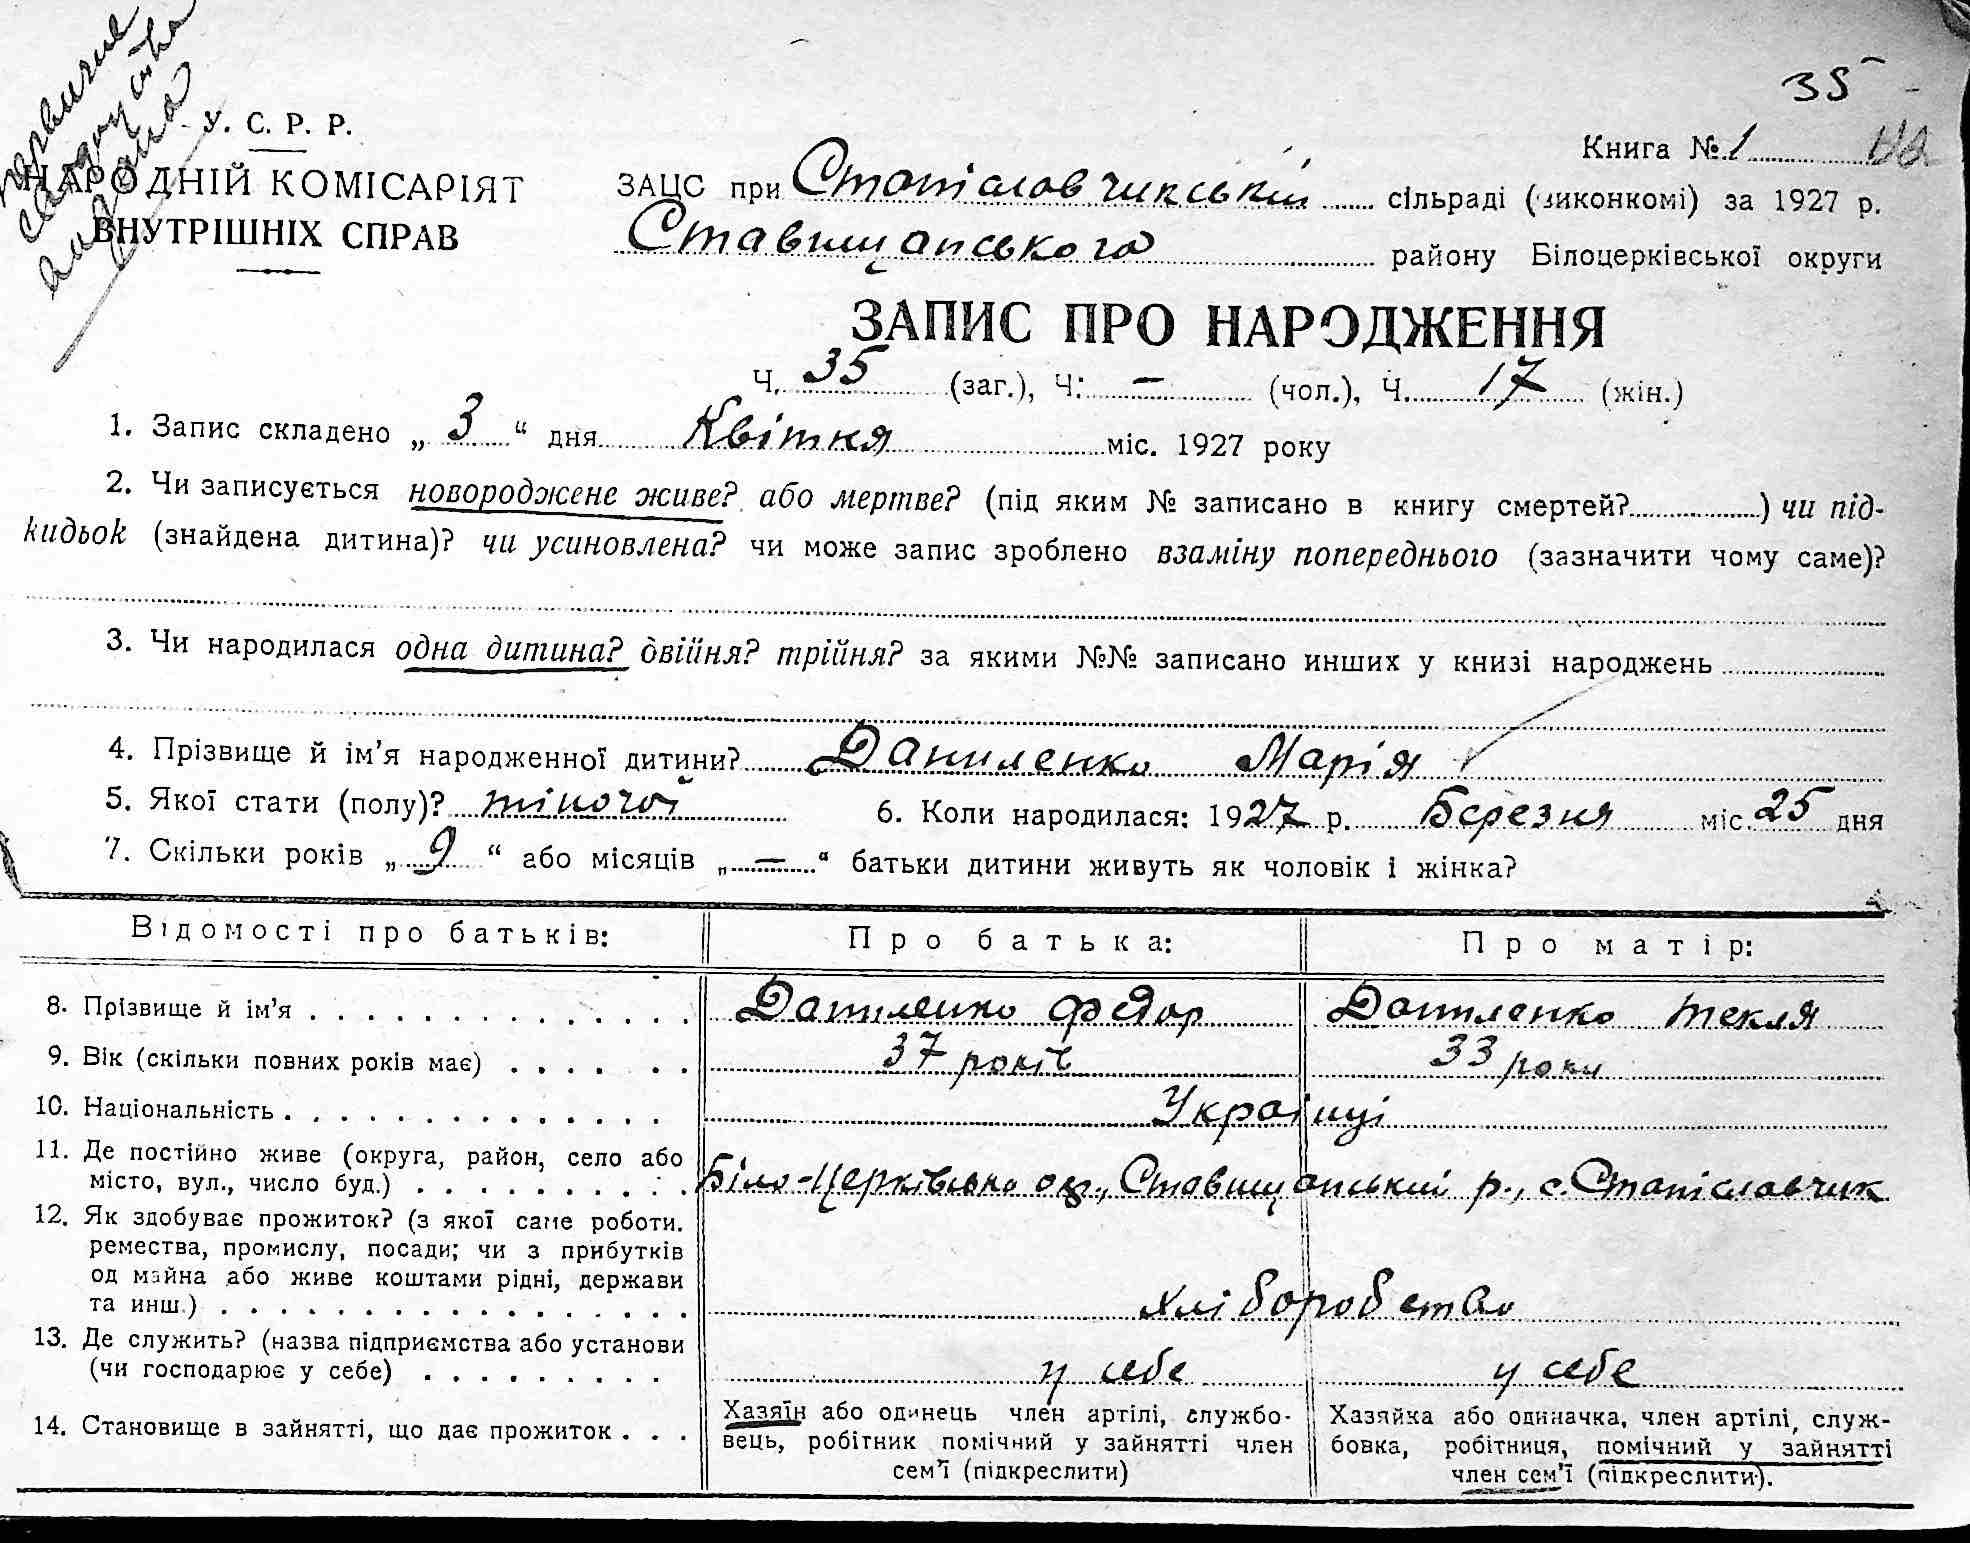 первичне
свідоцтво
видано
35
У. С. Р. Р.
НАРОДНІЙ КОМІСАРІЯТ
ВНУТРІШНІХ СПРАВ
Книга № 1
ЗАЦС при Станіславчикській сільраді (виконкомі) за 1927 р.
Ставищанського району Білоцерківської округи
ЗАПИС ПРО НАРОДЖЕННЯ
Ч. 35 (заг.), Ч: — (чол.), Ч. 17 (жін.)
1. Запис складено „ 3 “ дня Квітня міс. 1927 року
2. Чи записується новороджене живе? або мертве? (під яким № записано в книгу смертей? ) чи під-
кидьок (знайдена дитина)? чи усиновлена? чи може запис зроблено взаміну попереднього (зазначити чому саме)?
3. Чи народилася одна дитина? двійня? трійня? за якими №№ записано инших у книзі народжень
4. Прізвище й ім’я народженної дитини? Даниленко Марія
5. Якої стати (полу)? жіночої 6. Коли народилася: 1927 р. Березня міс. 25 дня
7. Скільки років „ 9 “ або місяців „ — “ батьки дитини живуть як чоловік і жінка?
Відомості про батьків: Про батька: Про матір:
8. Прізвище й ім’я Даниленко Федор Даниленко Текля
9. Вік (скільки повних років має) 37 років 33 роки
10. Національність Українці
11. Де постійно живе (округа, район, село або
місто, вул., число буд.) Біло-Церківська ок., Ставищанський р., с. Станіславчик
12. Як здобуває прожиток? (з якої саме роботи.
ремества, промислу, посади; чи з прибутків
од майна або живе коштами рідні, держави
та инш.) хліборобство
13. Де служить? (назва підприємства або установи
(чи господарює у себе) у себе у себе
14. Становище в зайнятті, що дає прожиток
Хазяїн або одинець член артілі, службо-
вець, робітник помічний у зайнятті член
сем’ї (підкреслити)
Хазяйка або одиначка, член артілі, служ-
бовка, робітниця, помічний у зайнятті
член сем’ї (підкреслити).